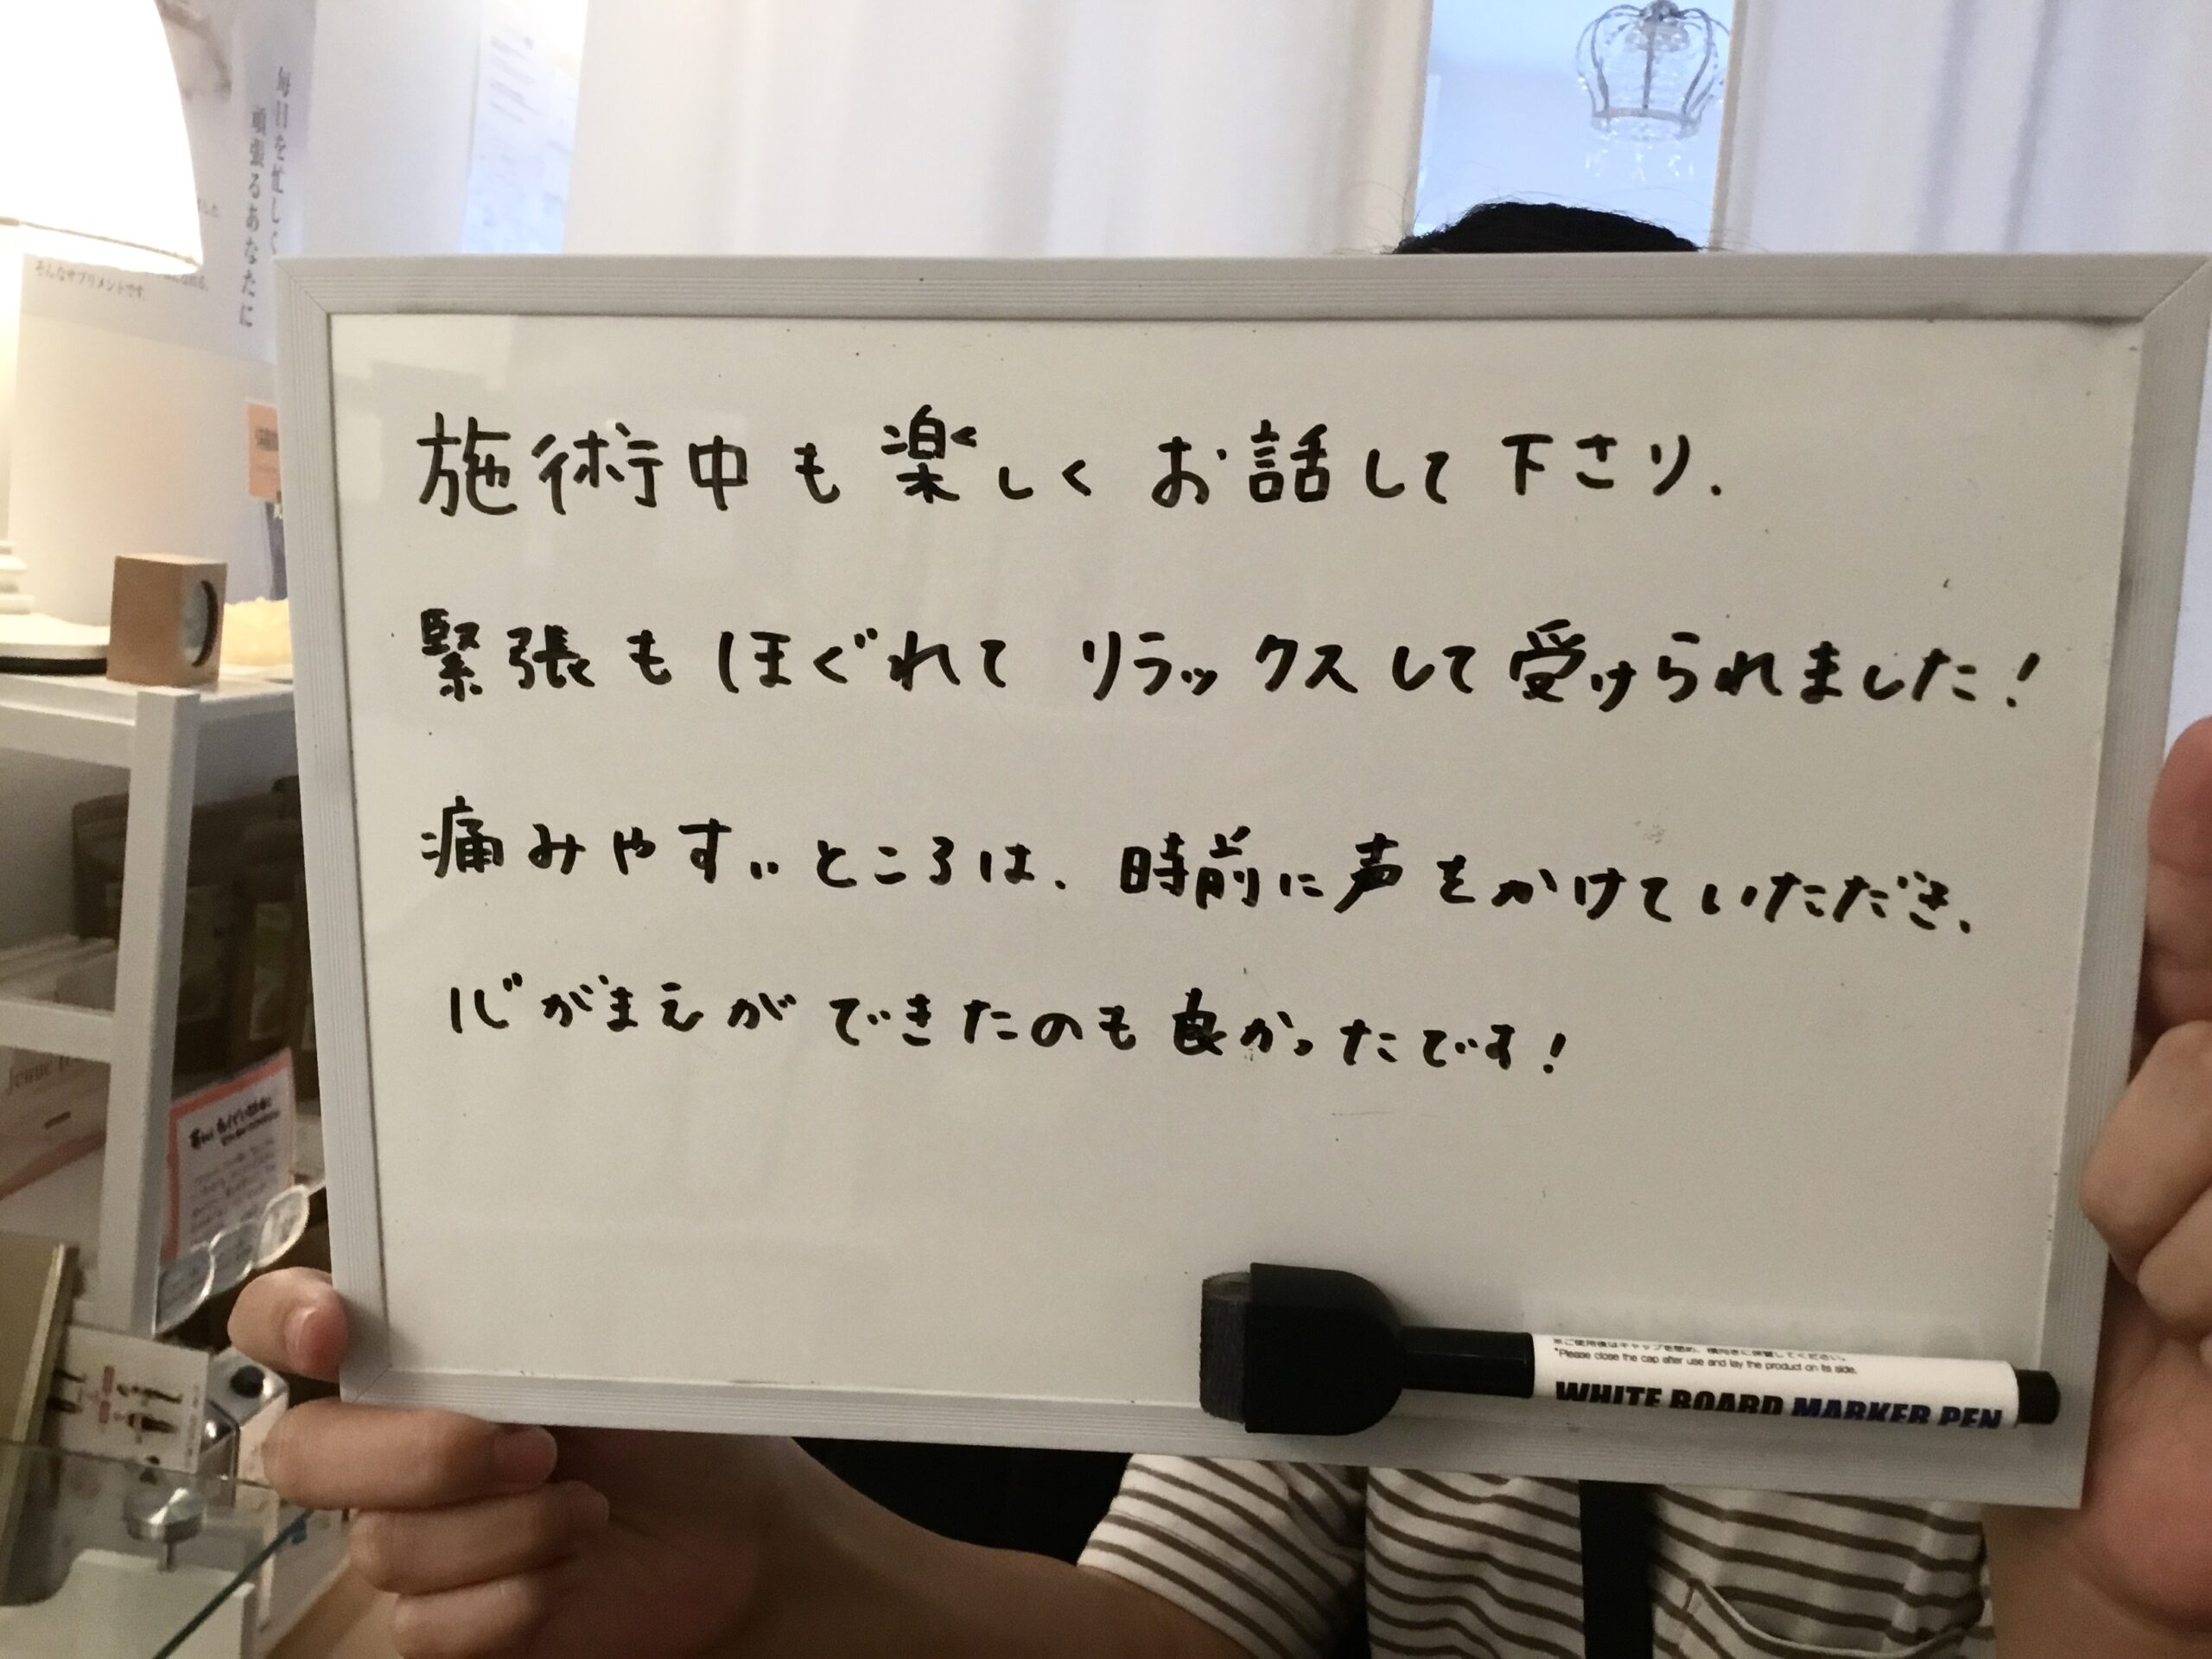 毎日を忙しく
頑張るあなたに
そんなサプリメントです。
施術中も楽しくお話して下さり、
緊張もほぐれてリラックスして受けられました！
痛みやすいところは、時前に声をかけていただき、
心がまえができたのも良かったです！
※ご使用後はキャップを閉め、横向きに保管してください。
*Please close the cap after use and lay the product on its side.
WHITE BOARD MARKER PEN